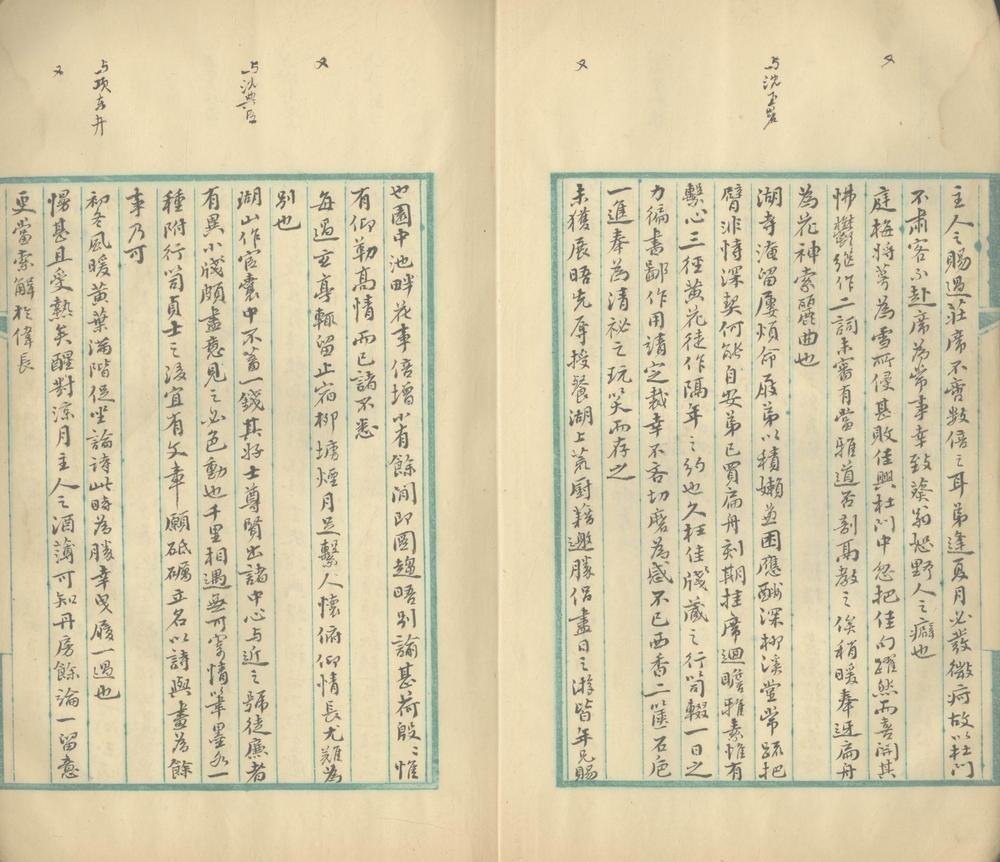 主人之賜過莊席不啻數倍之耳弟逢夏月必發微疴故以杜門
不肅客不赴席為常事幸致蔡翁恕野人之癖也
又
庭梅將萼為雪所侵甚敗佳興杜門中忽把佳句躍然而喜開其
怫鬱繼作二詞未審有當雅道否剖高教之俟稍暖奉迓扁舟
為花神索麗曲也
与沈玉
湖寺淹留屢煩命屐弟以積嬾並困應酬深柳溪堂常疏把
臂非恃深契何能自安弟已買扁舟刻期挂席迴瞻雅素惟有
繫心三徑黃花徒作隔年之約也久枉佳牋藏之行笥輟一日之
力徧書鄙作用請定裁幸不吝切磨為感不已西香二匣石卮
一進奉為清祕之玩笑而存之
又
未獲展晤先辱授餐湖上荒廚藉邀勝侶盡日之游皆年兄賜
也園中池畔花事倍增小有餘閒即圖趨晤別諭甚荷殷〻惟
有仰勒高情而已諸不悉
又
每過玄亭輒留止宿柳塘煙月足繫人懷俯仰情長尤難為
別也
与沈典臣
湖山作官囊中不蓄一錢其好士尊賢出諸中心与近之號徒廉者
有異小牋頗盡意見之必色動也千里相遇無可寄情筆墨各一
種附行笥貞士之後宜有文章願砥礪立名以詩與畫為餘
事乃可
与項東井
初冬風暖黃葉滿階促坐論詩此時為勝幸曳履一過也
又
慢甚且受熱矣醒對涼月主人之酒薄可知丹房餘論一留意
更當索解於偉長